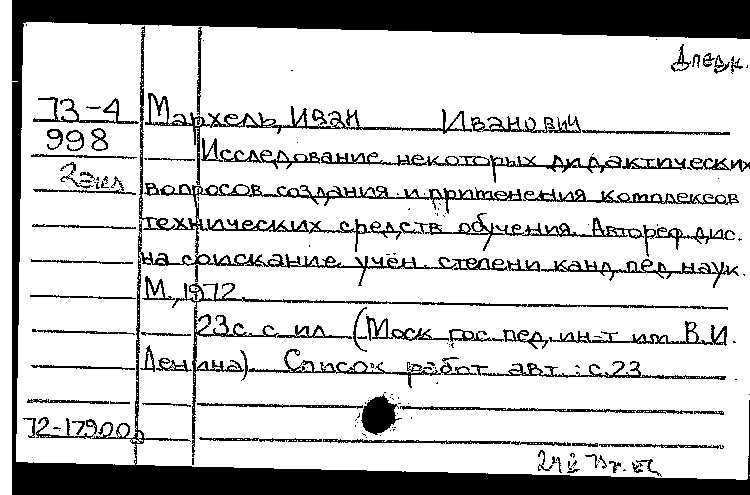 73-4 Мархель, Иван Иванович
998 Исследование некоторых дидактических
2экз вопросов создания и применения комплексов
технических средств обучения. Автореф. дис.
на соискание учён. степени канд. пед. наук.
М., 1972.
23с. с ил. (Моск. гос. пед. ин-т им. В.И.
Ленина). Список работ авт.: с.23
72-17900